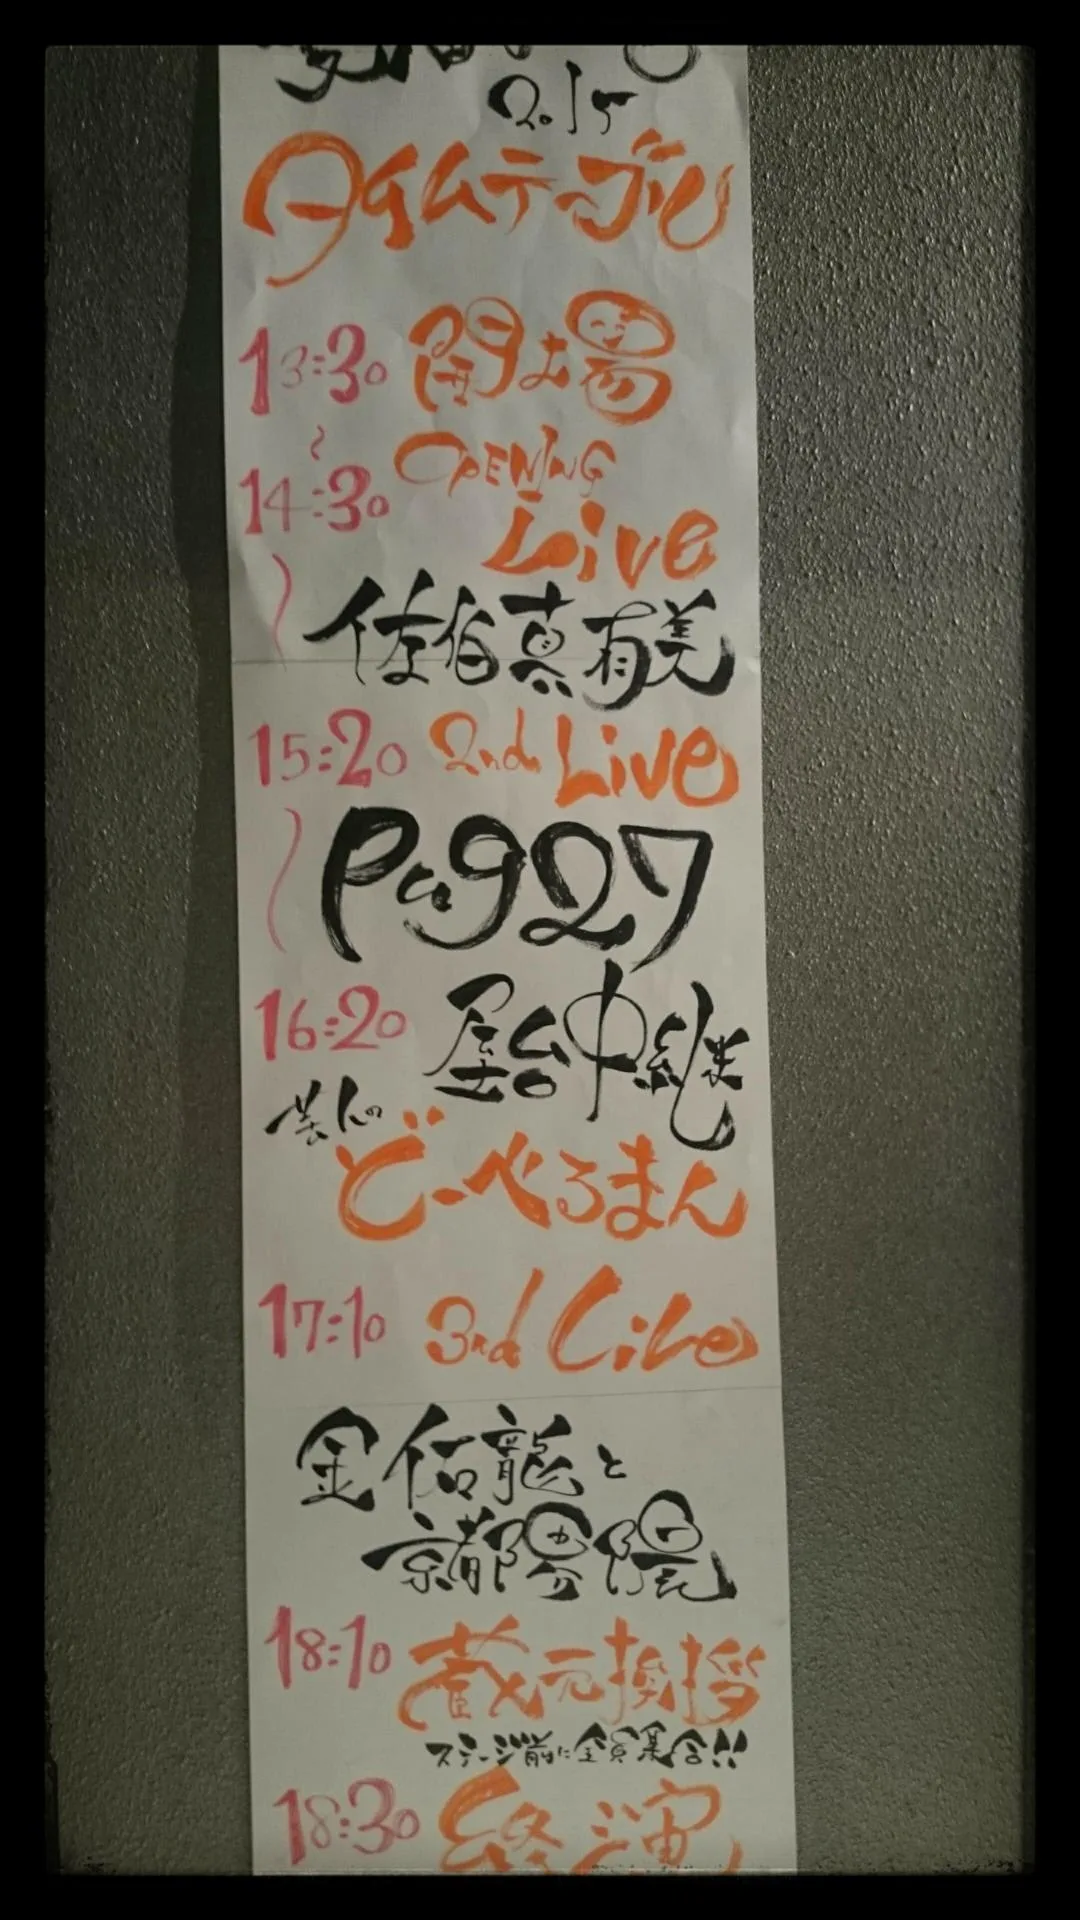 2015
タイムテーブル
13:30 開場
~
14:30 OPENING
Live
佐伯真有美
15:20 2nd Live
Pug27
16:20 屋台中継
芸人の
どーべるまん
17:10 3rd Live
金佑龍と
京都陽陰
18:10 蔵元挨拶
ステージ前に全員集合!!
18:30 終演